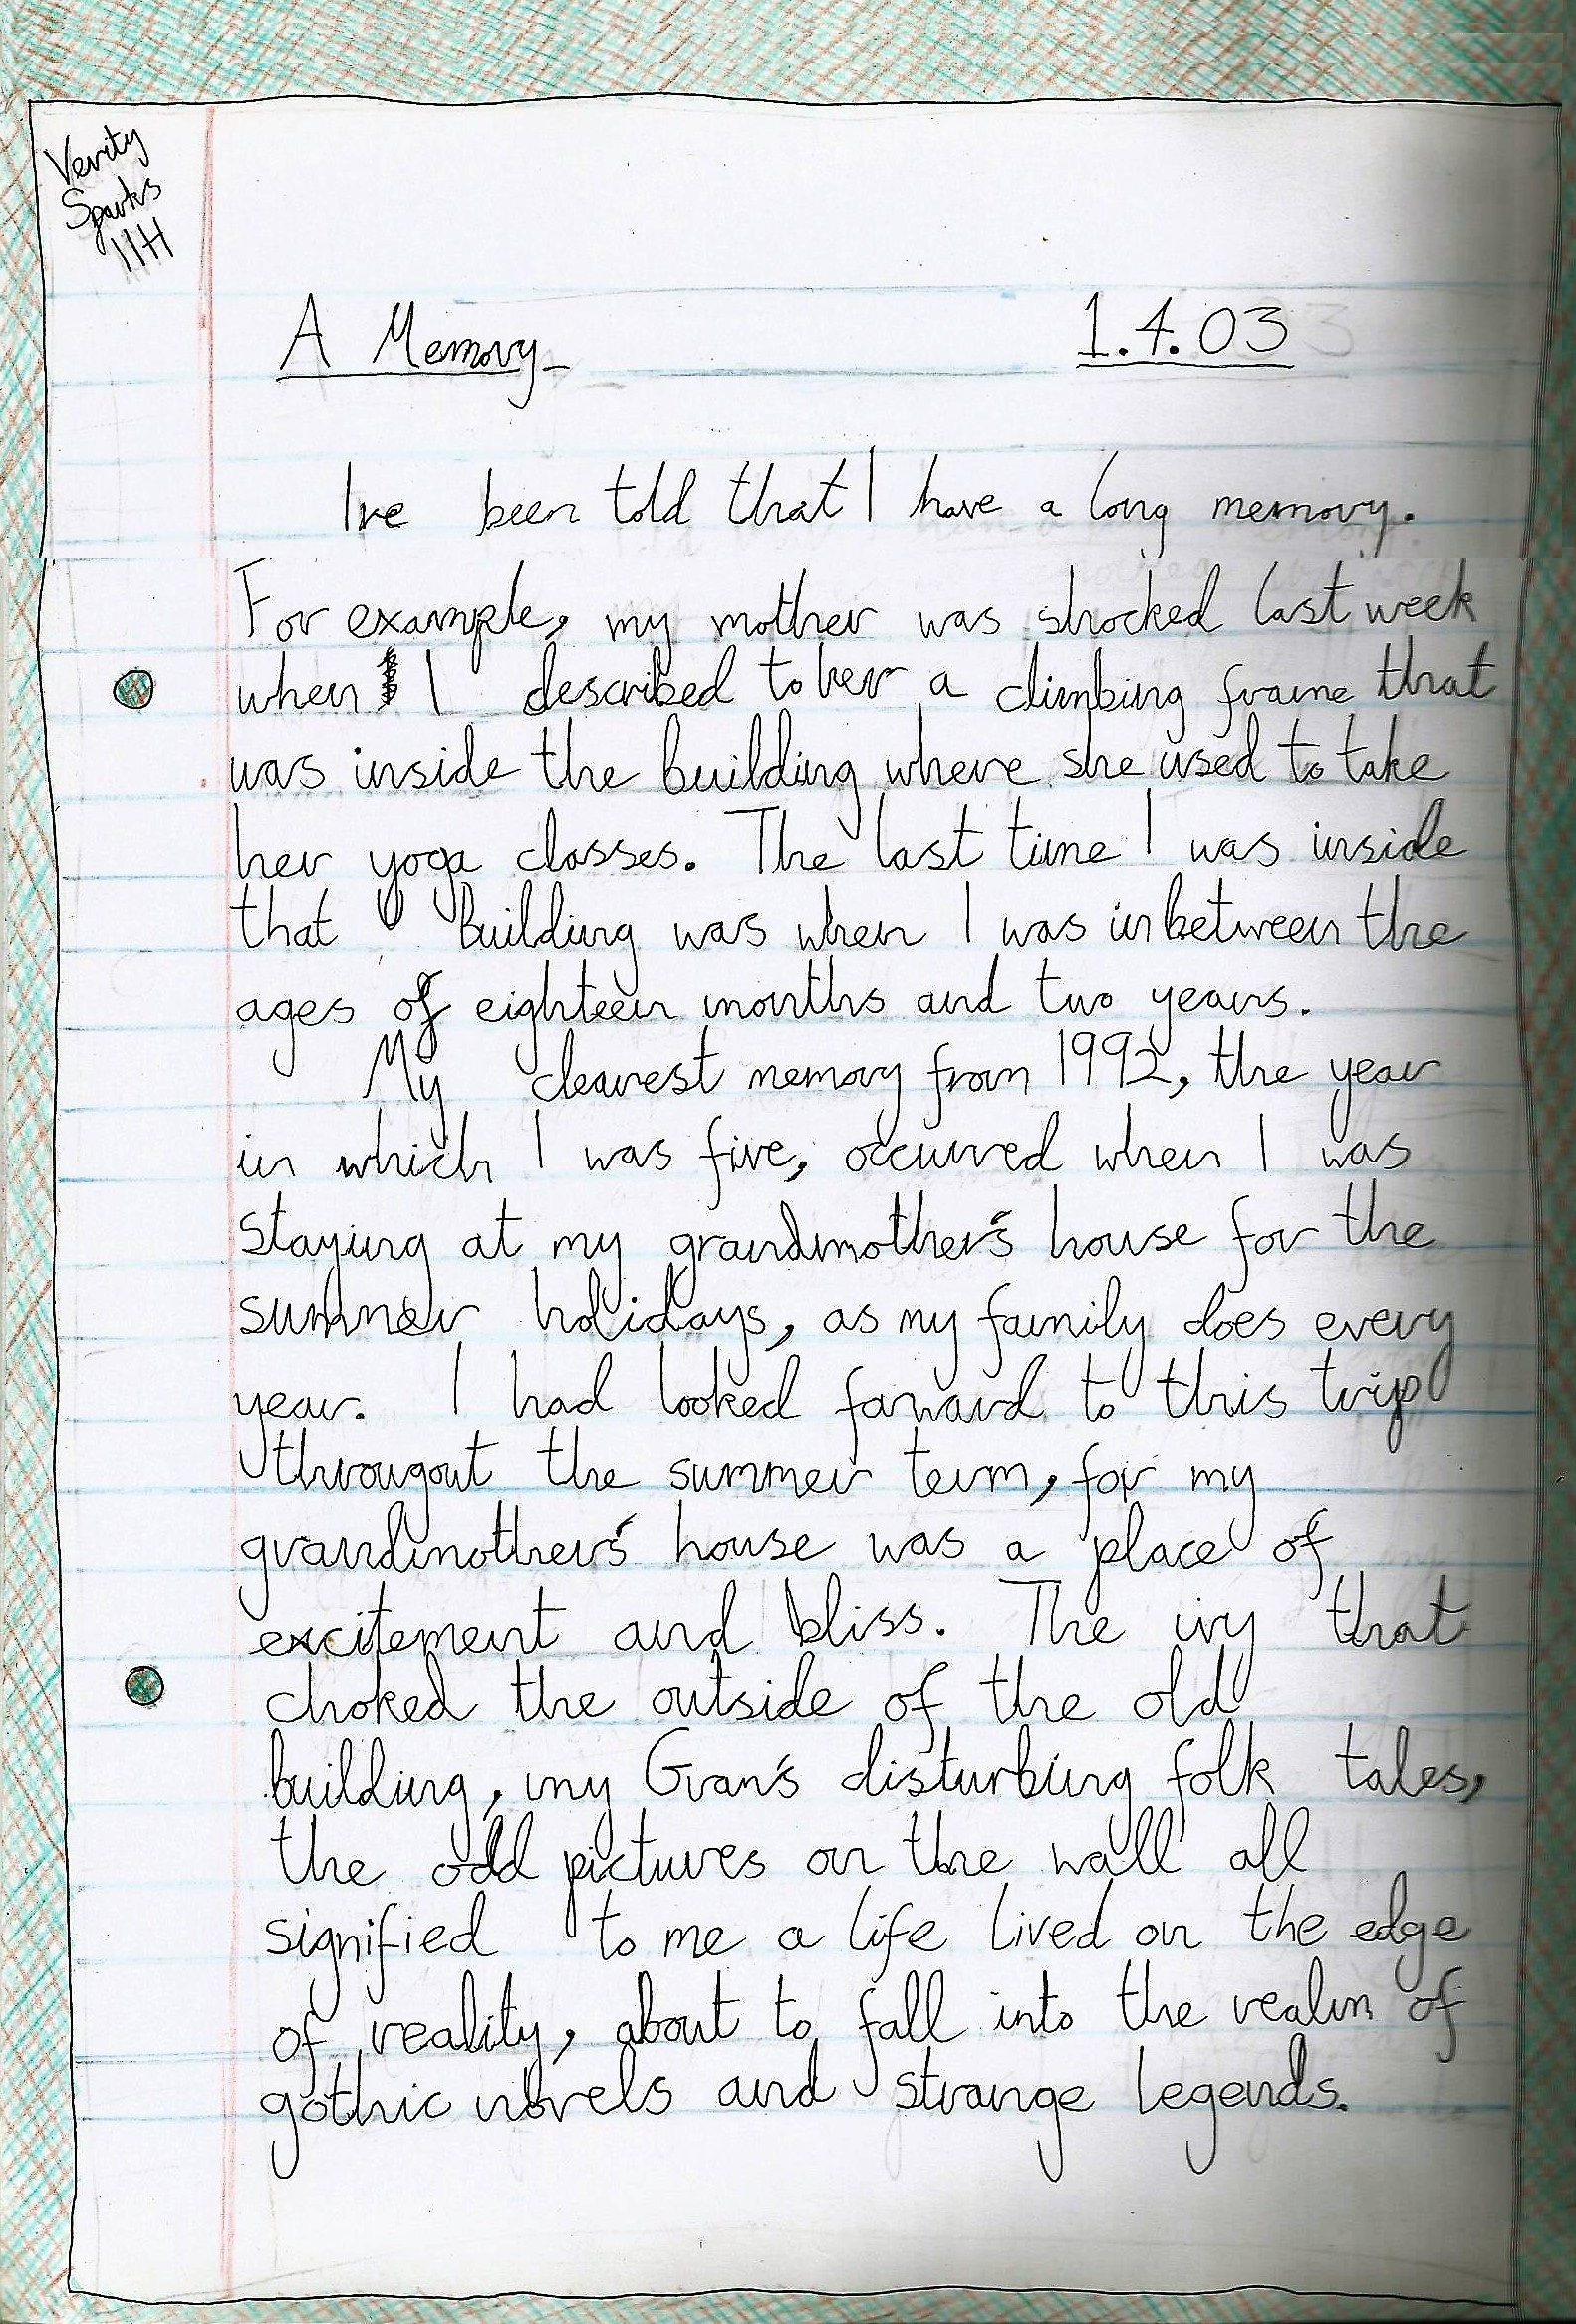 Verity
Sparks
11H
A Memory
1.4.03
I've been told that I have a long memory.
For example, my mother was shocked last week
when I described to her a climbing frame that
was inside the building where she used to take
her yoga classes. The last time I was inside
that building was when I was inbetween the
ages of eighteen months and two years.
My clearest memory from 1992, the year
in which I was five, occurred when I was
staying at my grandmother's house for the
summer holidays, as my family does every
year. I had looked forward to this trip
througout the summer term, for my
grandmother's house was a place of
excitement and bliss. The ivy that
choked the outside of the old
building, my Gran's disturbing folk tales,
the odd pictures on the wall all
signified to me a life lived on the edge
of reality, about to fall into the realm of
gothic novels and strange legends.